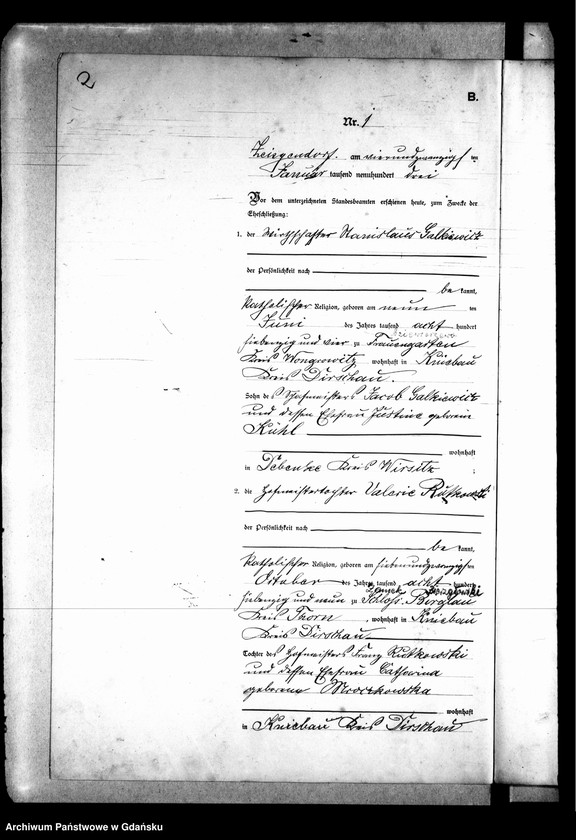 2
B.
Nr. 1
Zeisgendorf. am vierundzwanzigsten
Januar tausend neunhundert drei
Vor dem unterzeichneten Standesbeamten erschienen heute, zum Zwecke der
Eheschließung:
1. der Wirthschafter Stanislaus Galkiewitz
der Persönlichkeit nach
be kannt,
katholischer Religion, geboren am neun ten
Juni des Jahres tausend acht hundert
siebenzig und vier zu Frauengarten
Kreis Wongrowitz, wohnhaft in Kniebau
Kreis Dirschau.
Sohn des Hofmeisters Jacob Galkiewicz
und dessen Ehefrau Justine geborenen
Kühl
wohnhaft
in Debenke Kreis Wirsitz
2. die Hofmeistertochter Valerie Rutkowski
der Persönlichkeit nach
be kannt,
katholischer Religion, geboren am siebenundzwanzigsten
Oktober des Jahres tausend acht hundert
Zamek Bierzgłowski
siebenzig und neun zu Schloss. Birglau
Kreis Thorn, wohnhaft in Kniebau
Kreis Dirschau
Tochter des Hofmeisters Franz Rutkowski
und dessen Ehefrau Catharina
geborenen Mroczkowska
wohnhaft
in Kniebau Kreis Dirschau
Archiwum Państwowe w Gdańsku